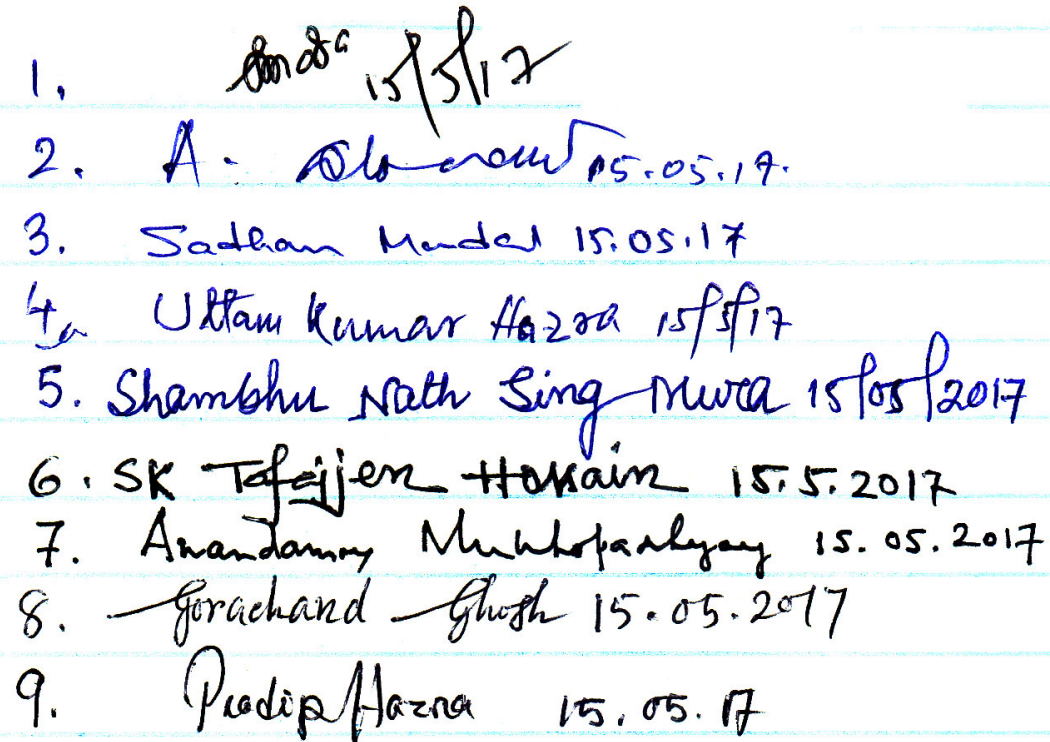 1. 15/5/17
2. A. 15.05.17.
3. Sadhan Mondal 15.05.17
4. Uttam Kumar Hazra 15/5/17
5. Shambhu Nath Sing Mura 15/05/2017
6. SK Tafejjen Hossain 15.5.2017
7. Anandamoy Mukhopadhyay 15.05.2017
8. Gorachand Ghosh 15.05.2017
9. Pradip Hazra 15.05.17